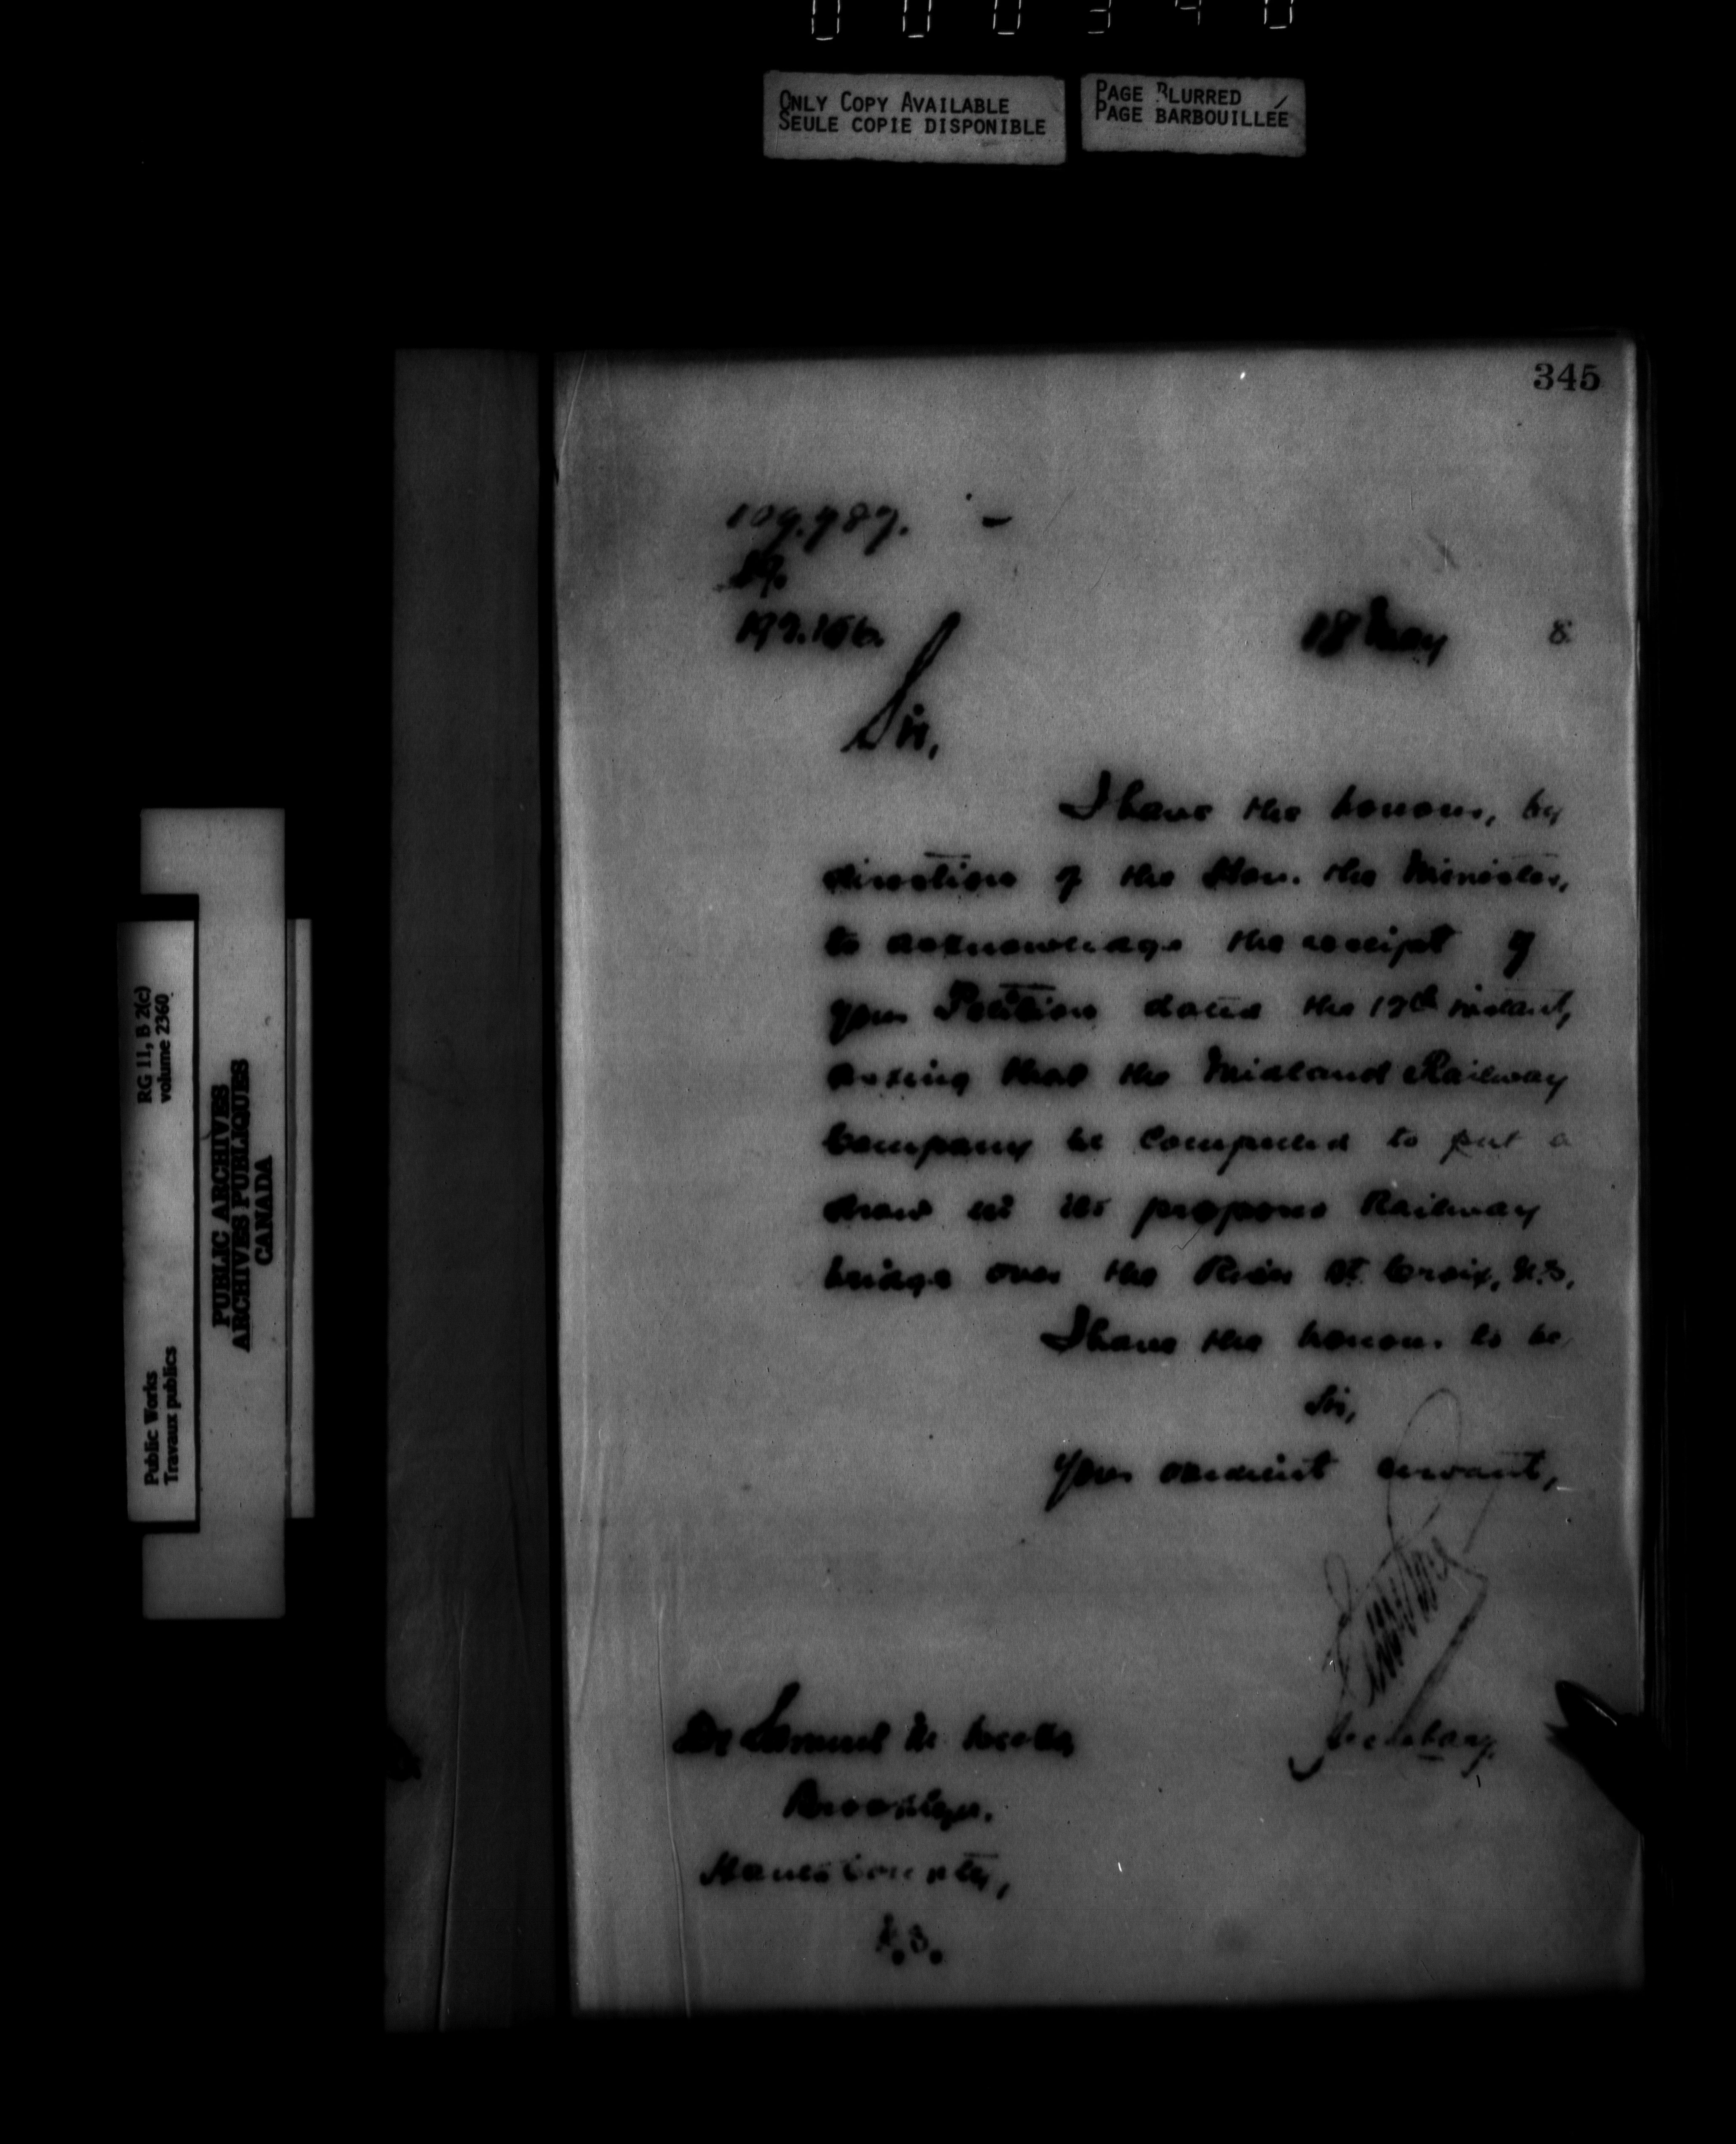 ONLY COPY AVAILABLE
SEULE COPIE DISPONIBLE
PAGE BLURRED
PAGE BARBOUILLÉE
345
18 May 8
Sir,
I have the honour, by
direction of the Hon. the Minister,
to acknowledge the receipt of
your Petition dated the 12th instant,
asking that the Midland Railway
Company be compelled to put a
draw in its proposed Railway
bridge over the River St. Croix, N.S.
I have the honour to be
Sir,
Your obedient servant,
Secretary.
Samuel
Brooklyn.
Hants County,
N.S.
RG 11, B 2(c)
volume 2360
Public Works
Travaux publics
PUBLIC ARCHIVES
ARCHIVES PUBLIQUES
CANADA